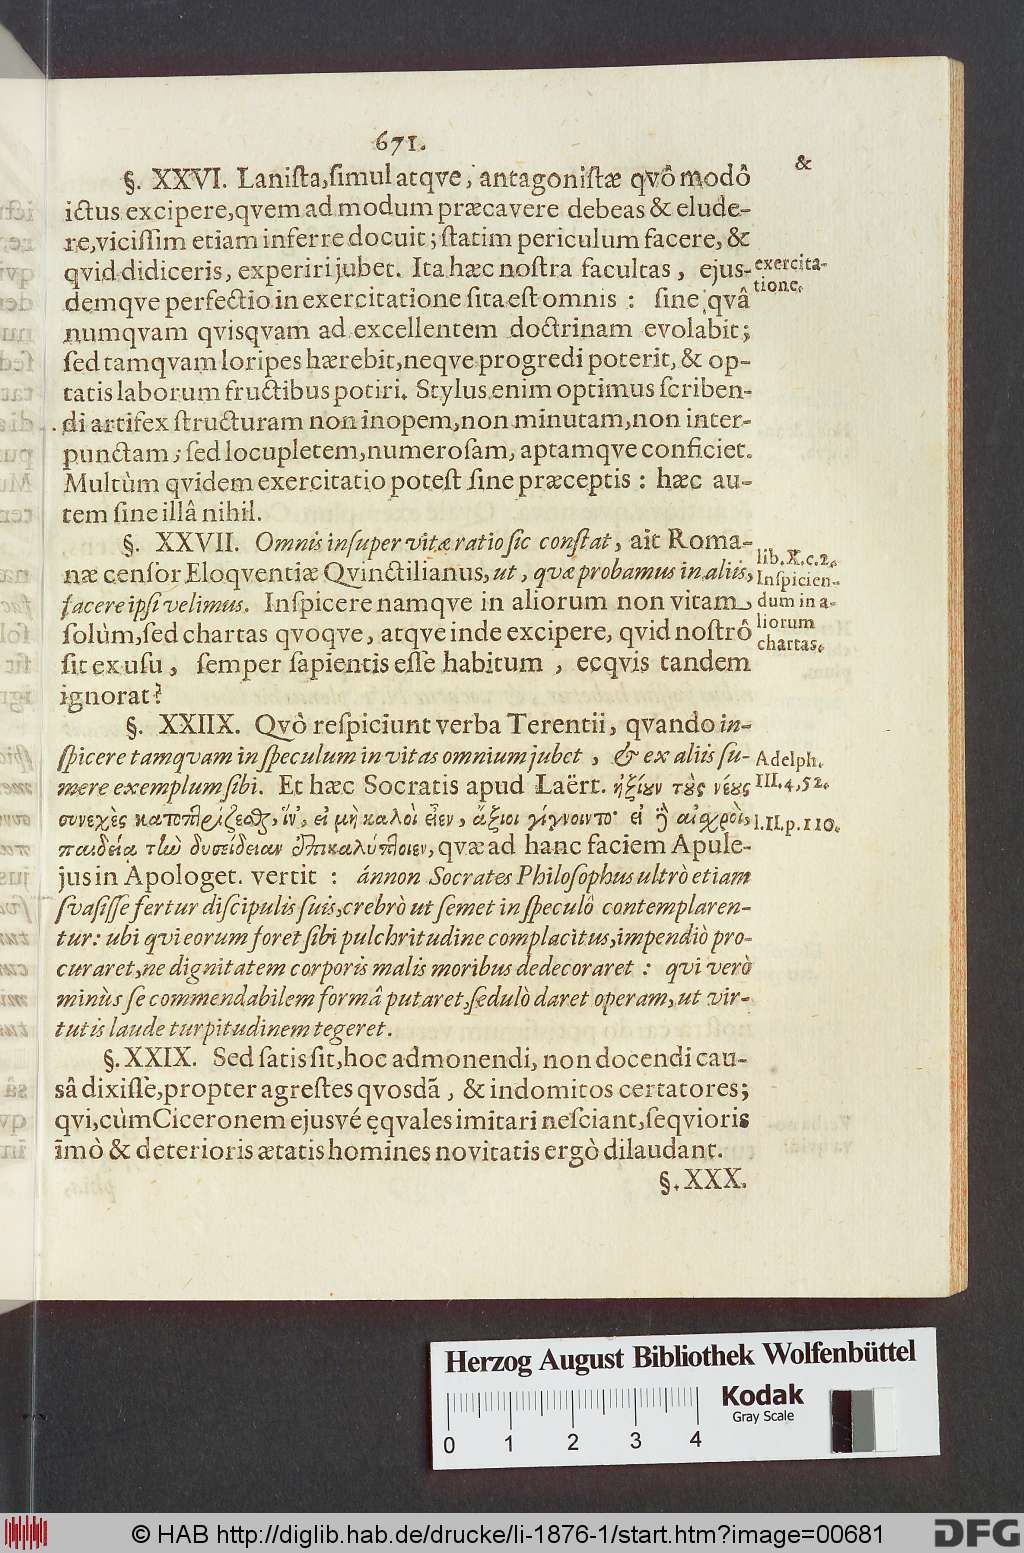 671.
§. XXVI. Laniſta, ſimul atqve, antagoniſtæ qvô modô
&
ictus excipere, qvem ad modum præcavere debeas & elude-
re, viciſſim etiam inferre docuit; ſtatim periculum facere, &
qvid didiceris, experiri jubet. Ita hæc noſtra facultas, ejus-
exercita-
demqve perfectio in exercitatione ſita eſt omnis: ſine qvâ
tione.
numqvam qvisqvam ad excellentem doctrinam evolabit;
ſed tamqvam loripes hærebit, neqve progredi poterit, & op-
tatis laborum fructibus potiri. Stylus enim optimus ſcriben-
di artifex ſtructuram non inopem, non minutam, non inter-
punctam; ſed locupletem, numeroſam, aptamqve conficiet.
Multùm qvidem exercitatio poteſt ſine præceptis: hæc au-
tem ſine illâ nihil.
§. XXVII. Omnis inſuper vitæ ratio ſic conſtat, ait Roma-
lib. X. c. 2.
næ cenſor Eloqventiæ Qvinctilianus, ut, qvæ probamus in aliis,
Inſpicien-
facere ipſi velimus. Inſpicere namqve in aliorum non vitam
dum in a-
ſolùm, ſed chartas qvoqve, atqve inde excipere, qvid noſtrô
liorum
chartas.
ſit ex uſu, ſemper ſapientis eſſe habitum, ecqvis tandem
ignorat?
§. XXIIX. Qvò reſpiciunt verba Terentii, qvando in-
ſpicere tamqvam in ſpeculum in vitas omnium jubet, & ex aliis ſu-
Adelph.
mere exemplum ſibi. Et hæc Socratis apud Laërt. ἠξίουν τοὺς νέους
III. 4, 52.
συνεχὲς κατοπτρίζεσθαι, ἵν', εἰ μὴ καλοὶ εἶεν, ἄξιοι γίγνοιντο· εἰ δὲ αἰσχροὶ,
l. II. p. 110.
παιδείᾳ τὴν δυσείδειαν ἐπικαλύπτοιεν, qvæ ad hanc faciem Apule-
jus in Apologet. vertit: ánnon Socrates Philoſophus ultrò etiam
ſvaſiſſe fertur diſcipulis ſuis, crebrò ut ſemet in ſpeculô contemplaren-
tur: ubi qvi eorum foret ſibi pulchritudine complacitus, impendiò pro-
curaret, ne dignitatem corporis malis moribus dedecoraret: qvi verò
minùs ſe commendabilem formâ putaret, ſedulò daret operam, ut vir-
tutis laude turpitudinem tegeret.
§. XXIX. Sed ſatis ſit, hoc admonendi, non docendi cau-
sâ dixiſſe, propter agreſtes qvosdã, & indomitos certatores;
qvi, cùm Ciceronem ejusvé ęqvales imitari neſciant, ſeqvioris
īmò & deterioris ætatis homines novitatis ergò dilaudant.
§. XXX.
Herzog August Bibliothek Wolfenbüttel
Kodak
Gray Scale
0 1 2 3 4
© HAB http://diglib.hab.de/drucke/li-1876-1/start.htm?image=00681
DFG